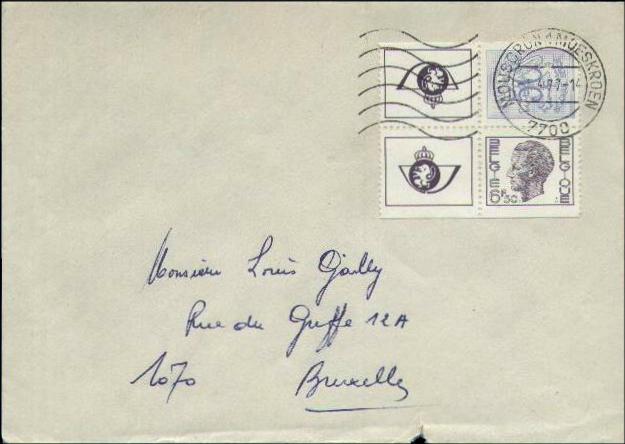 MOUSCRON 1 MOESKROEN
7700
BELGIE BELGIQUE
6F50
Monsieur Louis Gailly
Rue du Greffe 12A
1070 Bruxelles